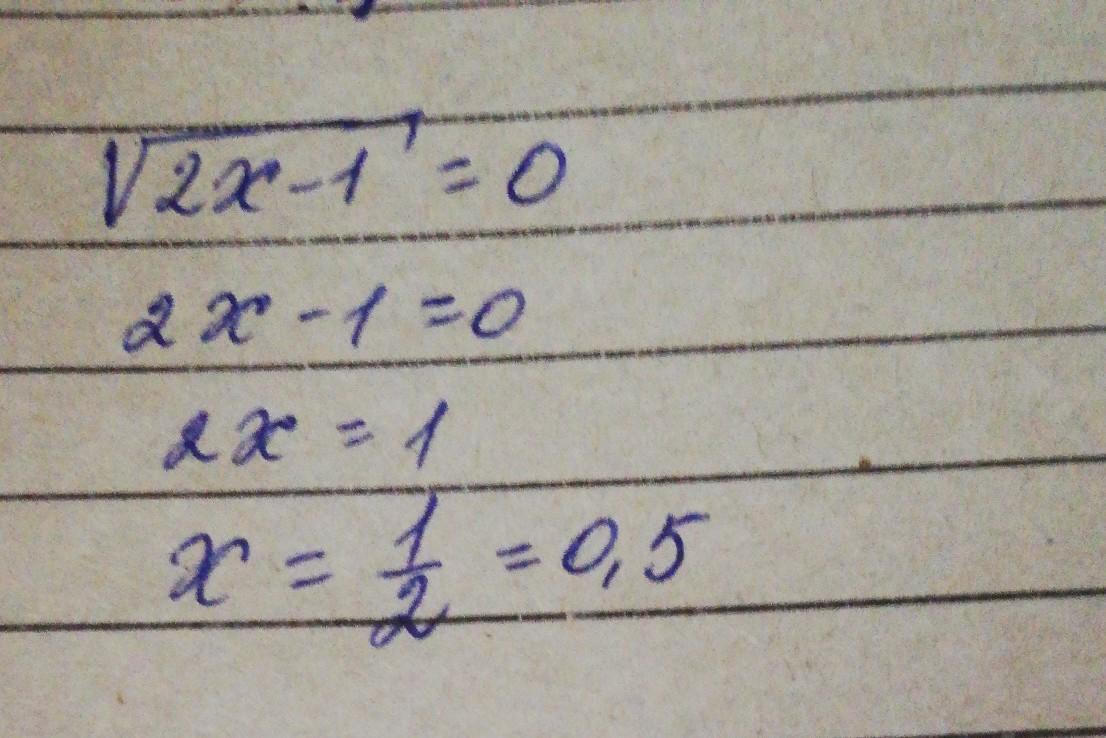 √2x-1 = 0
2x-1=0
2x = 1
x = 1/2 = 0,5